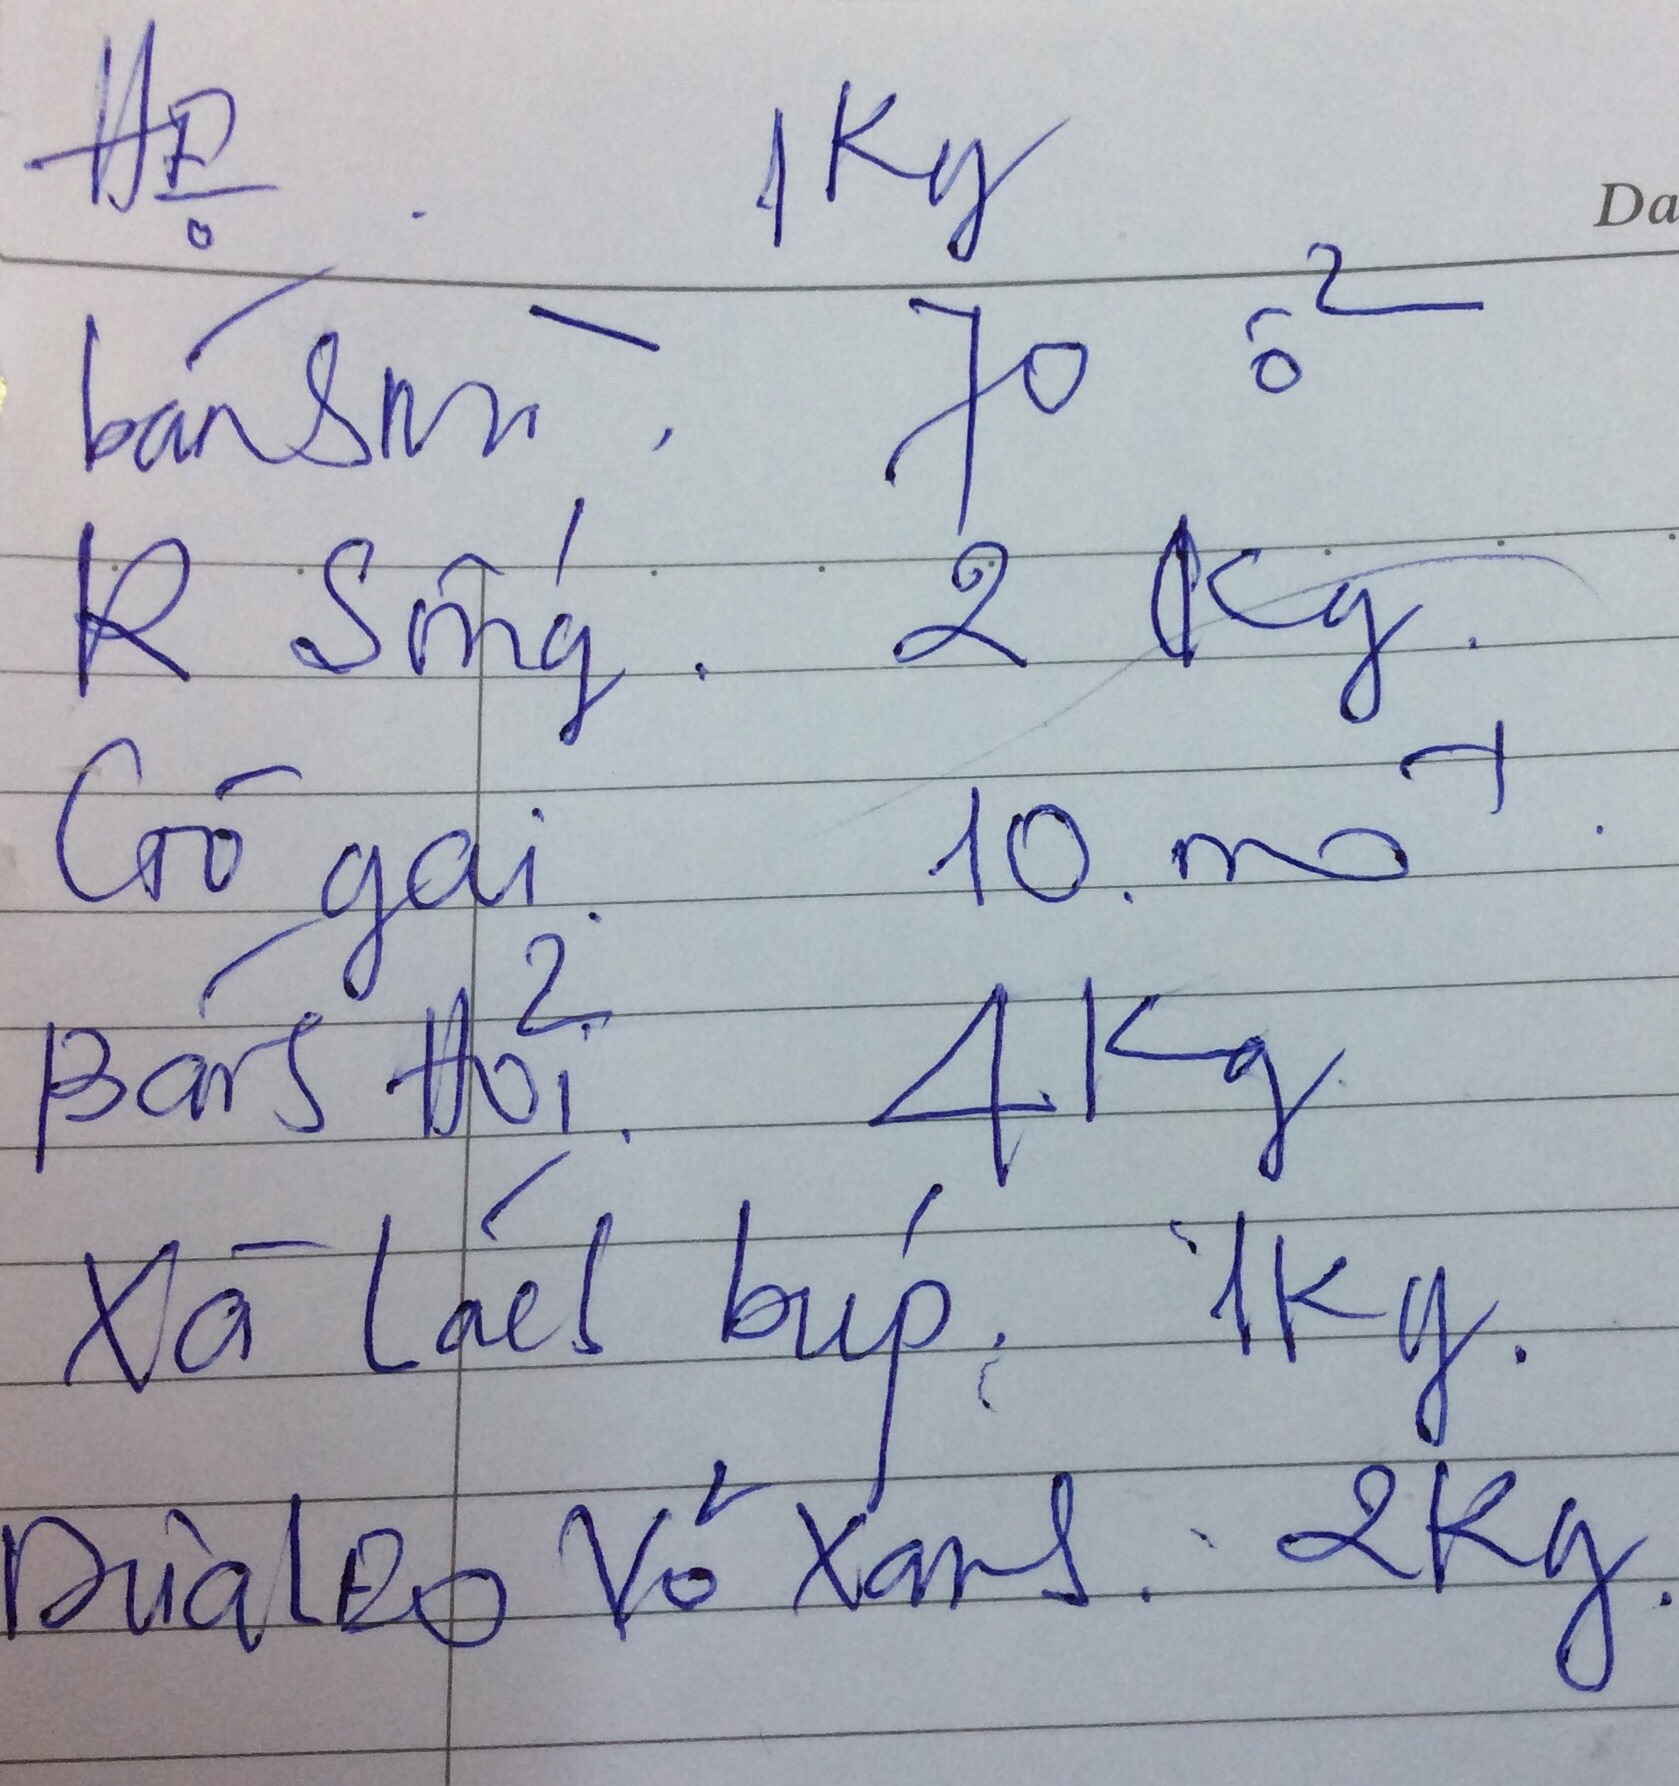 Hẹ. 1Kg
Da
bánS mì. 70 ổ
R Sống. 2 Kg.
Gò gai. 10. mớ.
BánS Hỏi. 4 Kg
Xà Lách búp. 1Kg.
Dưa Leo Vỏ XanS. 2Kg.